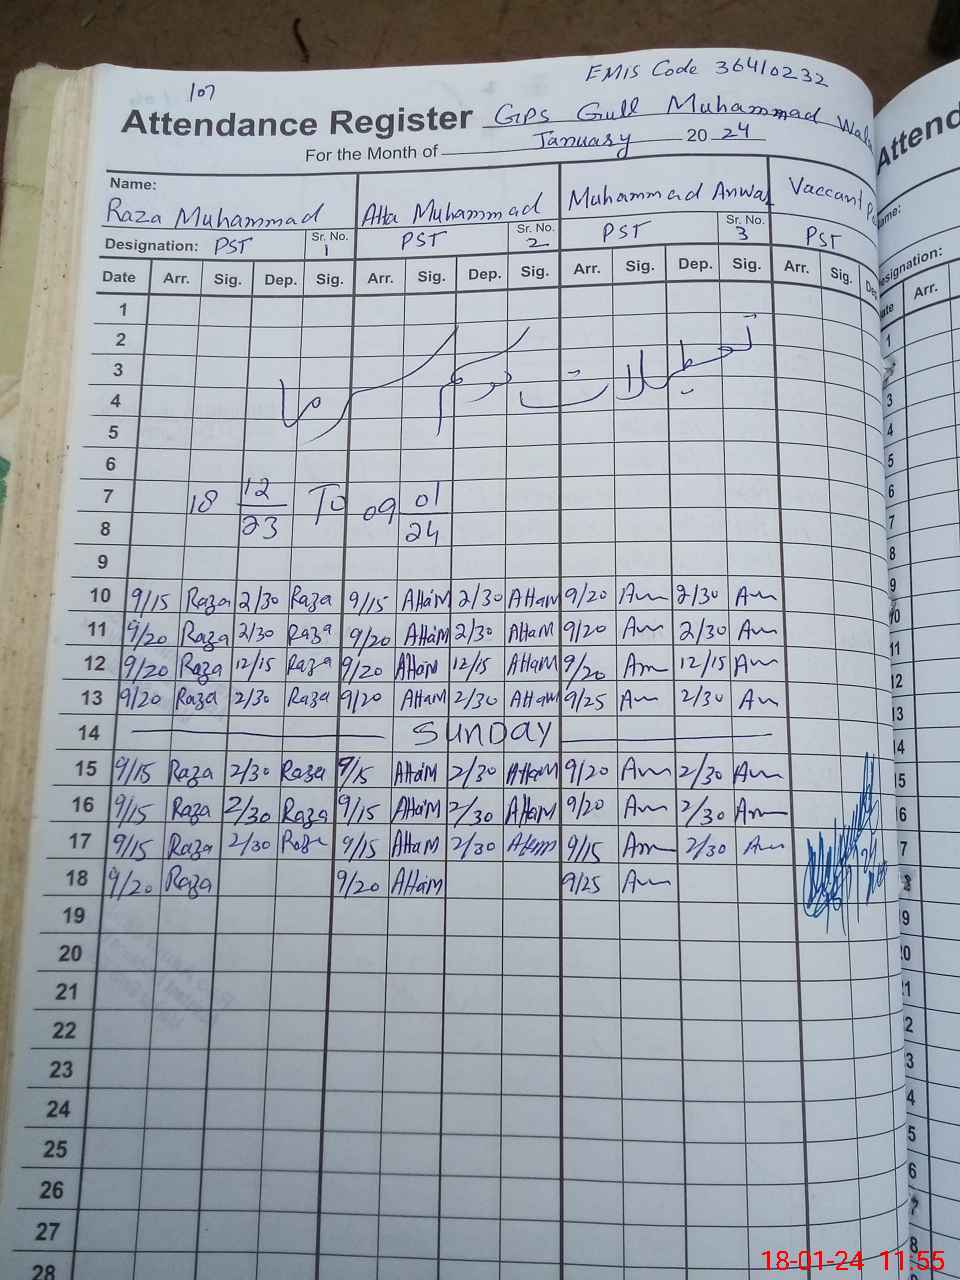 107
EMIS Code 36410232
Attendance Register GPS Gull Muhammad
For the Month of January 2024
Name: Raza Muhammad Atta Muhammad Muhammad Anwar Vaccant
Designation: PST Sr. No. 1 PST Sr. No. 2 PST Sr. No. 3 PST
Date Arr. Sig. Dep. Sig. Arr. Sig. Dep. Sig. Arr. Sig. Dep. Sig. Arr. Sig. Dep
1
2
3
تعطیلات موسم سرما
4
5
6
7
8
18 12/23 TO 09 01/24
9
10 9/15 Raza 2/30 Raza 9/15 AttaM 2/30 AttaM 9/20 An 2/30 An
11 9/20 Raza 2/30 Raza 9/20 AttaM 2/30 AttaM 9/20 An 2/30 An
12 9/20 Raza 12/15 Raza 9/20 AttaM 12/15 AttaM 9/20 An 12/15 An
13 9/20 Raza 2/30 Raza 9/20 AttaM 2/30 AttaM 9/25 An 2/30 An
14 SUNDAY
15 9/15 Raza 2/30 Raza 9/15 AttaM 2/30 AttaM 9/20 An 2/30 An
16 9/15 Raza 2/30 Raza 9/15 AttaM 2/30 AttaM 9/20 An 2/30 An
17 9/15 Raza 2/30 Raza 9/15 AttaM 2/30 AttaM 9/15 An 2/30 An
18 9/20 Raza 9/20 AttaM 9/25 An
19
20
21
22
23
24
25
26
27
28
Attend
Designation:
Arr.
1
3
4
5
6
7
8
9
10
11
12
13
14
15
18-01-24 11:55